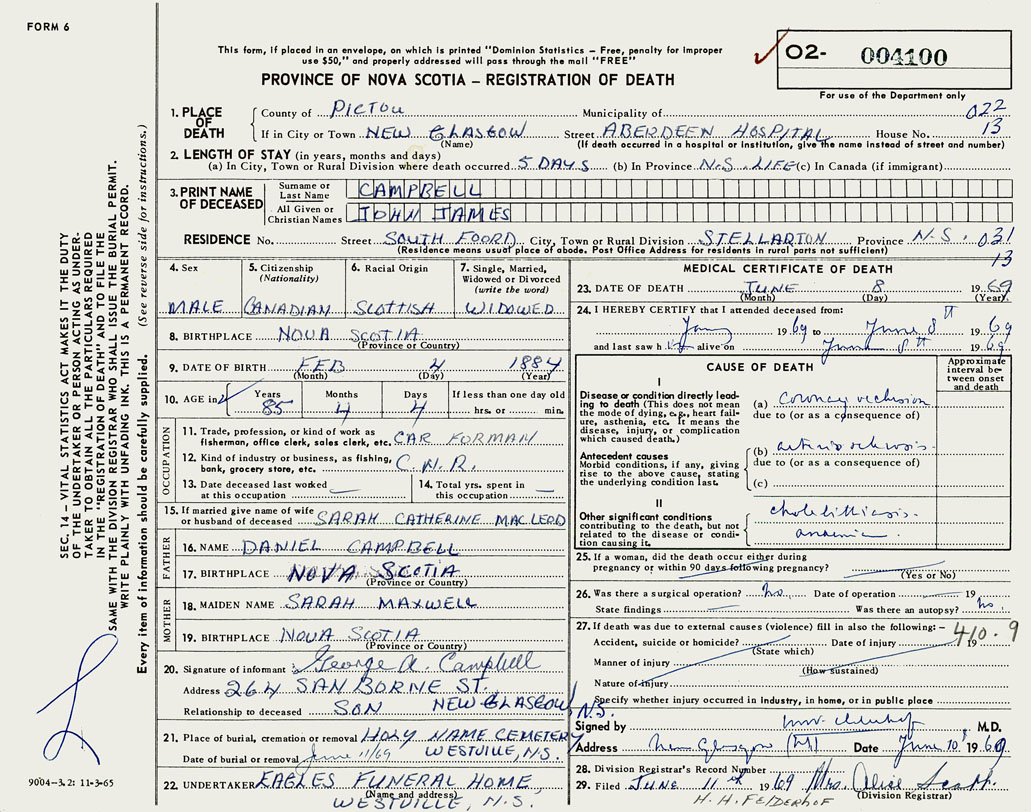 FORM 6
This form, if placed in an envelope, on which is printed "Dominion Statistics – Free, penalty for improper
use $50," and properly addressed will pass through the mail "FREE"
PROVINCE OF NOVA SCOTIA – REGISTRATION OF DEATH
02- 004100
For use of the Department only
1. PLACE OF DEATH
County of PICTOU Municipality of 022
If in City or Town NEW GLASGOW Street ABERDEEN HOSPITAL House No. 13
(Name) (If death occurred in a hospital or Institution, give the name instead of street and number)
2. LENGTH OF STAY (in years, months and days)
(a) In City, Town or Rural Division where death occurred 5 DAYS (b) In Province N.S. LIFE (c) In Canada (if immigrant)
3. PRINT NAME OF DECEASED
Surname or Last Name CAMPBELL
All Given or Christian Names JOHN JAMES
RESIDENCE No. Street SOUTH FOORD City, Town or Rural Division STELLARTON Province N.S. 031
(Residence means usual place of abode. Post Office Address for residents in rural parts not sufficient)
13
4. Sex MALE
5. Citizenship (Nationality) CANADIAN
6. Racial Origin SCOTTISH
7. Single, Married, Widowed or Divorced (write the word) WIDOWED
8. BIRTHPLACE NOVA SCOTIA
(Province or Country)
9. DATE OF BIRTH FEB 4 1884
(Month) (Day) (Year)
10. AGE in Years 85 Months 4 Days 4 If less than one day old hrs. or min.
OCCUPATION
11. Trade, profession, or kind of work as
fisherman, office clerk, sales clerk, etc. CAR FORMAN
12. Kind of industry or business, as fishing,
bank, grocery store, etc. C.N.R.
13. Date deceased last worked
at this occupation
14. Total yrs. spent in
this occupation
15. If married give name of wife
or husband of deceased SARAH CATHERINE MACLEOD
FATHER
16. NAME DANIEL CAMPBELL
17. BIRTHPLACE NOVA SCOTIA
(Province or Country)
MOTHER
18. MAIDEN NAME SARAH MAXWELL
19. BIRTHPLACE NOVA SCOTIA
(Province or Country)
20. Signature of informant George A. Campbell
Address 264 SANBORNE ST.
NEW GLASGOW N.S.
Relationship to deceased SON
21. Place of burial, cremation or removal HOLY NAME CEMETERY
WESTVILLE, N.S.
Date of burial or removal June 11/69
22. UNDERTAKER EAGLES FUNERAL HOME,
(Name and address)
WESTVILLE, N.S.
MEDICAL CERTIFICATE OF DEATH
23. DATE OF DEATH JUNE 8 1969
(Month) (Day) (Year)
24. I HEREBY CERTIFY that I attended deceased from:
1969 to June 8th 1969
and last saw h alive on June 8th 1969
CAUSE OF DEATH
Approximate interval between onset and death
I
Disease or condition directly leading to death (This does not mean the mode of dying, e.g., heart failure, asthenia, etc. It means the disease, injury, or complication which caused death.)
(a) Coronary occlusion
due to (or as a consequence of)
Antecedent causes
Morbid conditions, if any, giving rise to the above cause, stating the underlying condition last.
(b) arteriosclerosis
due to (or as a consequence of)
(c)
II
Other significant conditions contributing to the death, but not related to the disease or condition causing it.
cholelithiasis
anaemia
25. If a woman, did the death occur either during
pregnancy or within 90 days following pregnancy?
(Yes or No)
26. Was there a surgical operation? no. Date of operation 19
State findings Was there an autopsy? no.
27. If death was due to external causes (violence) fill in also the following: – 410.9
Accident, suicide or homicide? Date of injury 19
(State which)
Manner of injury
(How sustained)
Nature of injury
Specify whether injury occurred in Industry, in home, or in public place
Signed by M.D.
Address New Glasgow Date June 10 1969
28. Division Registrar's Record Number
29. Filed JUNE 11th 1969 Mrs. Alice Scott
(Division Registrar)
H. H. FELDERHOF
SEC. 14 – VITAL STATISTICS ACT MAKES IT THE DUTY
OF THE UNDERTAKER OR PERSON ACTING AS UNDER-
TAKER TO OBTAIN ALL THE PARTICULARS REQUIRED
IN THE "REGISTRATION OF DEATH" AND TO FILE THE
SAME WITH THE DIVISION REGISTRAR WHO SHALL ISSUE THE BURIAL PERMIT.
WRITE PLAINLY WITH UNFADING INK. THIS IS A PERMANENT RECORD.
Every item of information should be carefully supplied. (See reverse side for instructions.)
9004-3.2: 11-3-65